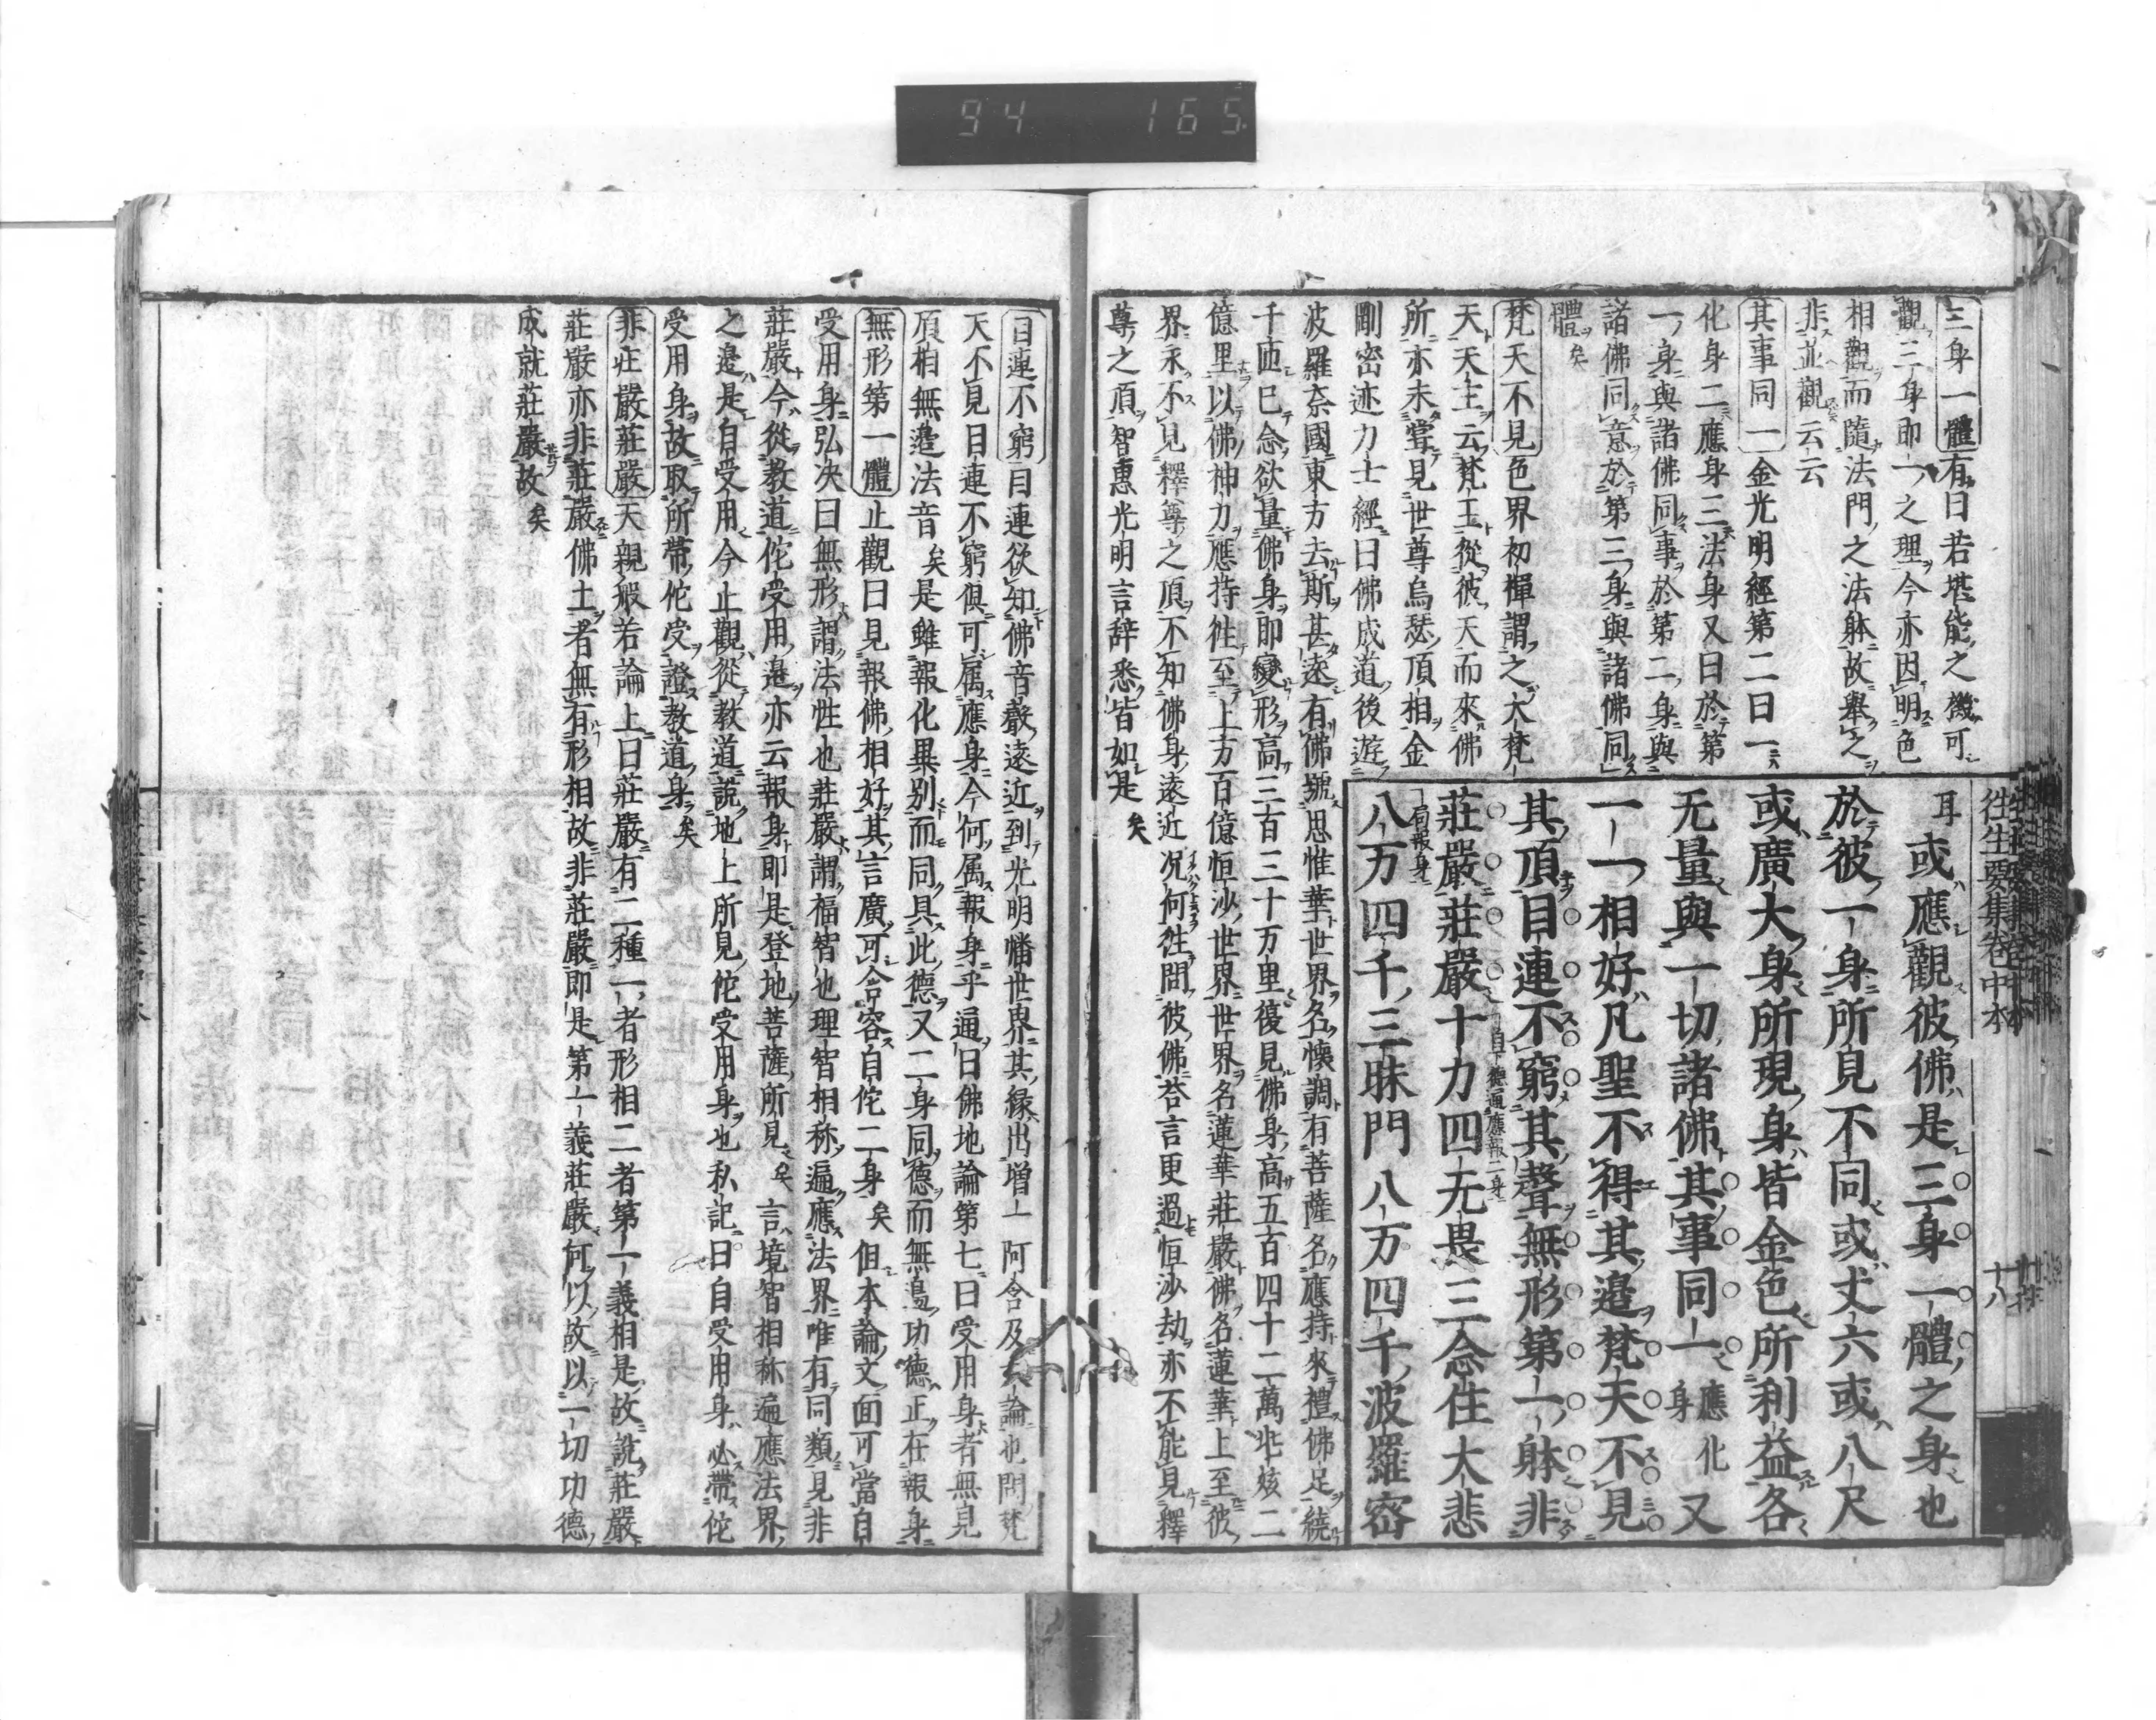 94 165
往生要集卷中本
十八
三身一體有曰若堪能之機可
觀三身即一之理今亦因明色
相觀而隨法門之法躰故舉之
非並觀云云
其事同一金光明經第二曰一
化身二應身三法身又曰於第
一身與諸佛同事於第二身與
諸佛同意於第三身與諸佛同
體矣
梵天不見色界初禪謂之大梵
天天主云梵王從彼天而來佛
所亦未甞見世尊烏瑟頂相金
剛密迹力士經曰佛成道後遊
耳或應觀彼佛是三身一體之身也
於彼一身所見不同或丈六或八尺
或廣大身所現身皆金色所利益各
无量與一切諸佛其事同一應化身又
一一相好凡聖不得其邉梵天不見
其頂目連不窮其聲無形第一躰非
莊嚴莊嚴十力四无畏三念住大悲
八万四千三昧門八万四千波羅密
波羅奈國東方去斯甚遠有佛號思惟華世界名懷調有菩薩名應持來禮佛足繞
千匝已念欲量佛身即變形高三百三十万里復見佛身高五百四十二萬垓二
億里以佛神力應持徃至上方百億恒沙世界世界名蓮華莊嚴佛名蓮華上至彼
界永不見釋尊之頂不知佛身遠近况何徃問彼佛荅言更過恒沙劫亦不能見釋
尊之頂智惠光明言辞悉皆如是矣
目連不窮目連欲知佛音聲遠近到光明幡世界其緣出増一阿含及大論也問梵
天不見目連不窮俱可属應身今何属報身乎通曰佛地論第七曰受用身者無見
頂相無邉法音矣是雖報化畢别而同具此德又二身同德而無邉功德正在報身
無形第一體止觀曰見報佛相好其言廣可含容自佗二身矣但本論文面可當自
受用身弘决曰無形謂法性也莊嚴謂福智也理智相称遍應法界唯有同類見非
莊嚴今從教道佗受用邉亦云報身即是登地菩薩所見矣言境智相称遍應法界
之邉是自受用今止觀從教道說地上所見佗受用身也私記曰自受用身必帶佗
受用身故取所帶佗受證教道身矣
非莊嚴莊嚴天親般若論上曰莊嚴有二種一者形相二者第一義相是故說莊嚴
莊嚴亦非莊嚴佛土者無有形相故非莊嚴即是第一義莊嚴何以故以一切功德
成就莊嚴故矣